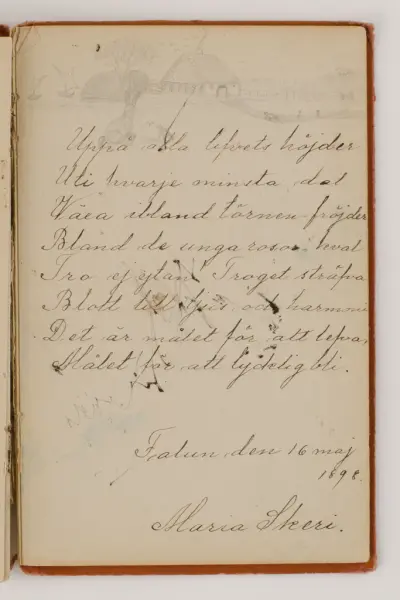 Uppå alla lefvets höjder
Uti hvarje minsta dal
Växa ibland törnen fröjder
Bland de unga rosor hval
Tro ej ytan! Troget sträfva
Blott till ljus och harmoni
Det är målet för att lefva,
Målet för att lycklig bli.
Falun den 16 maj
1898.
Maria Skeri.